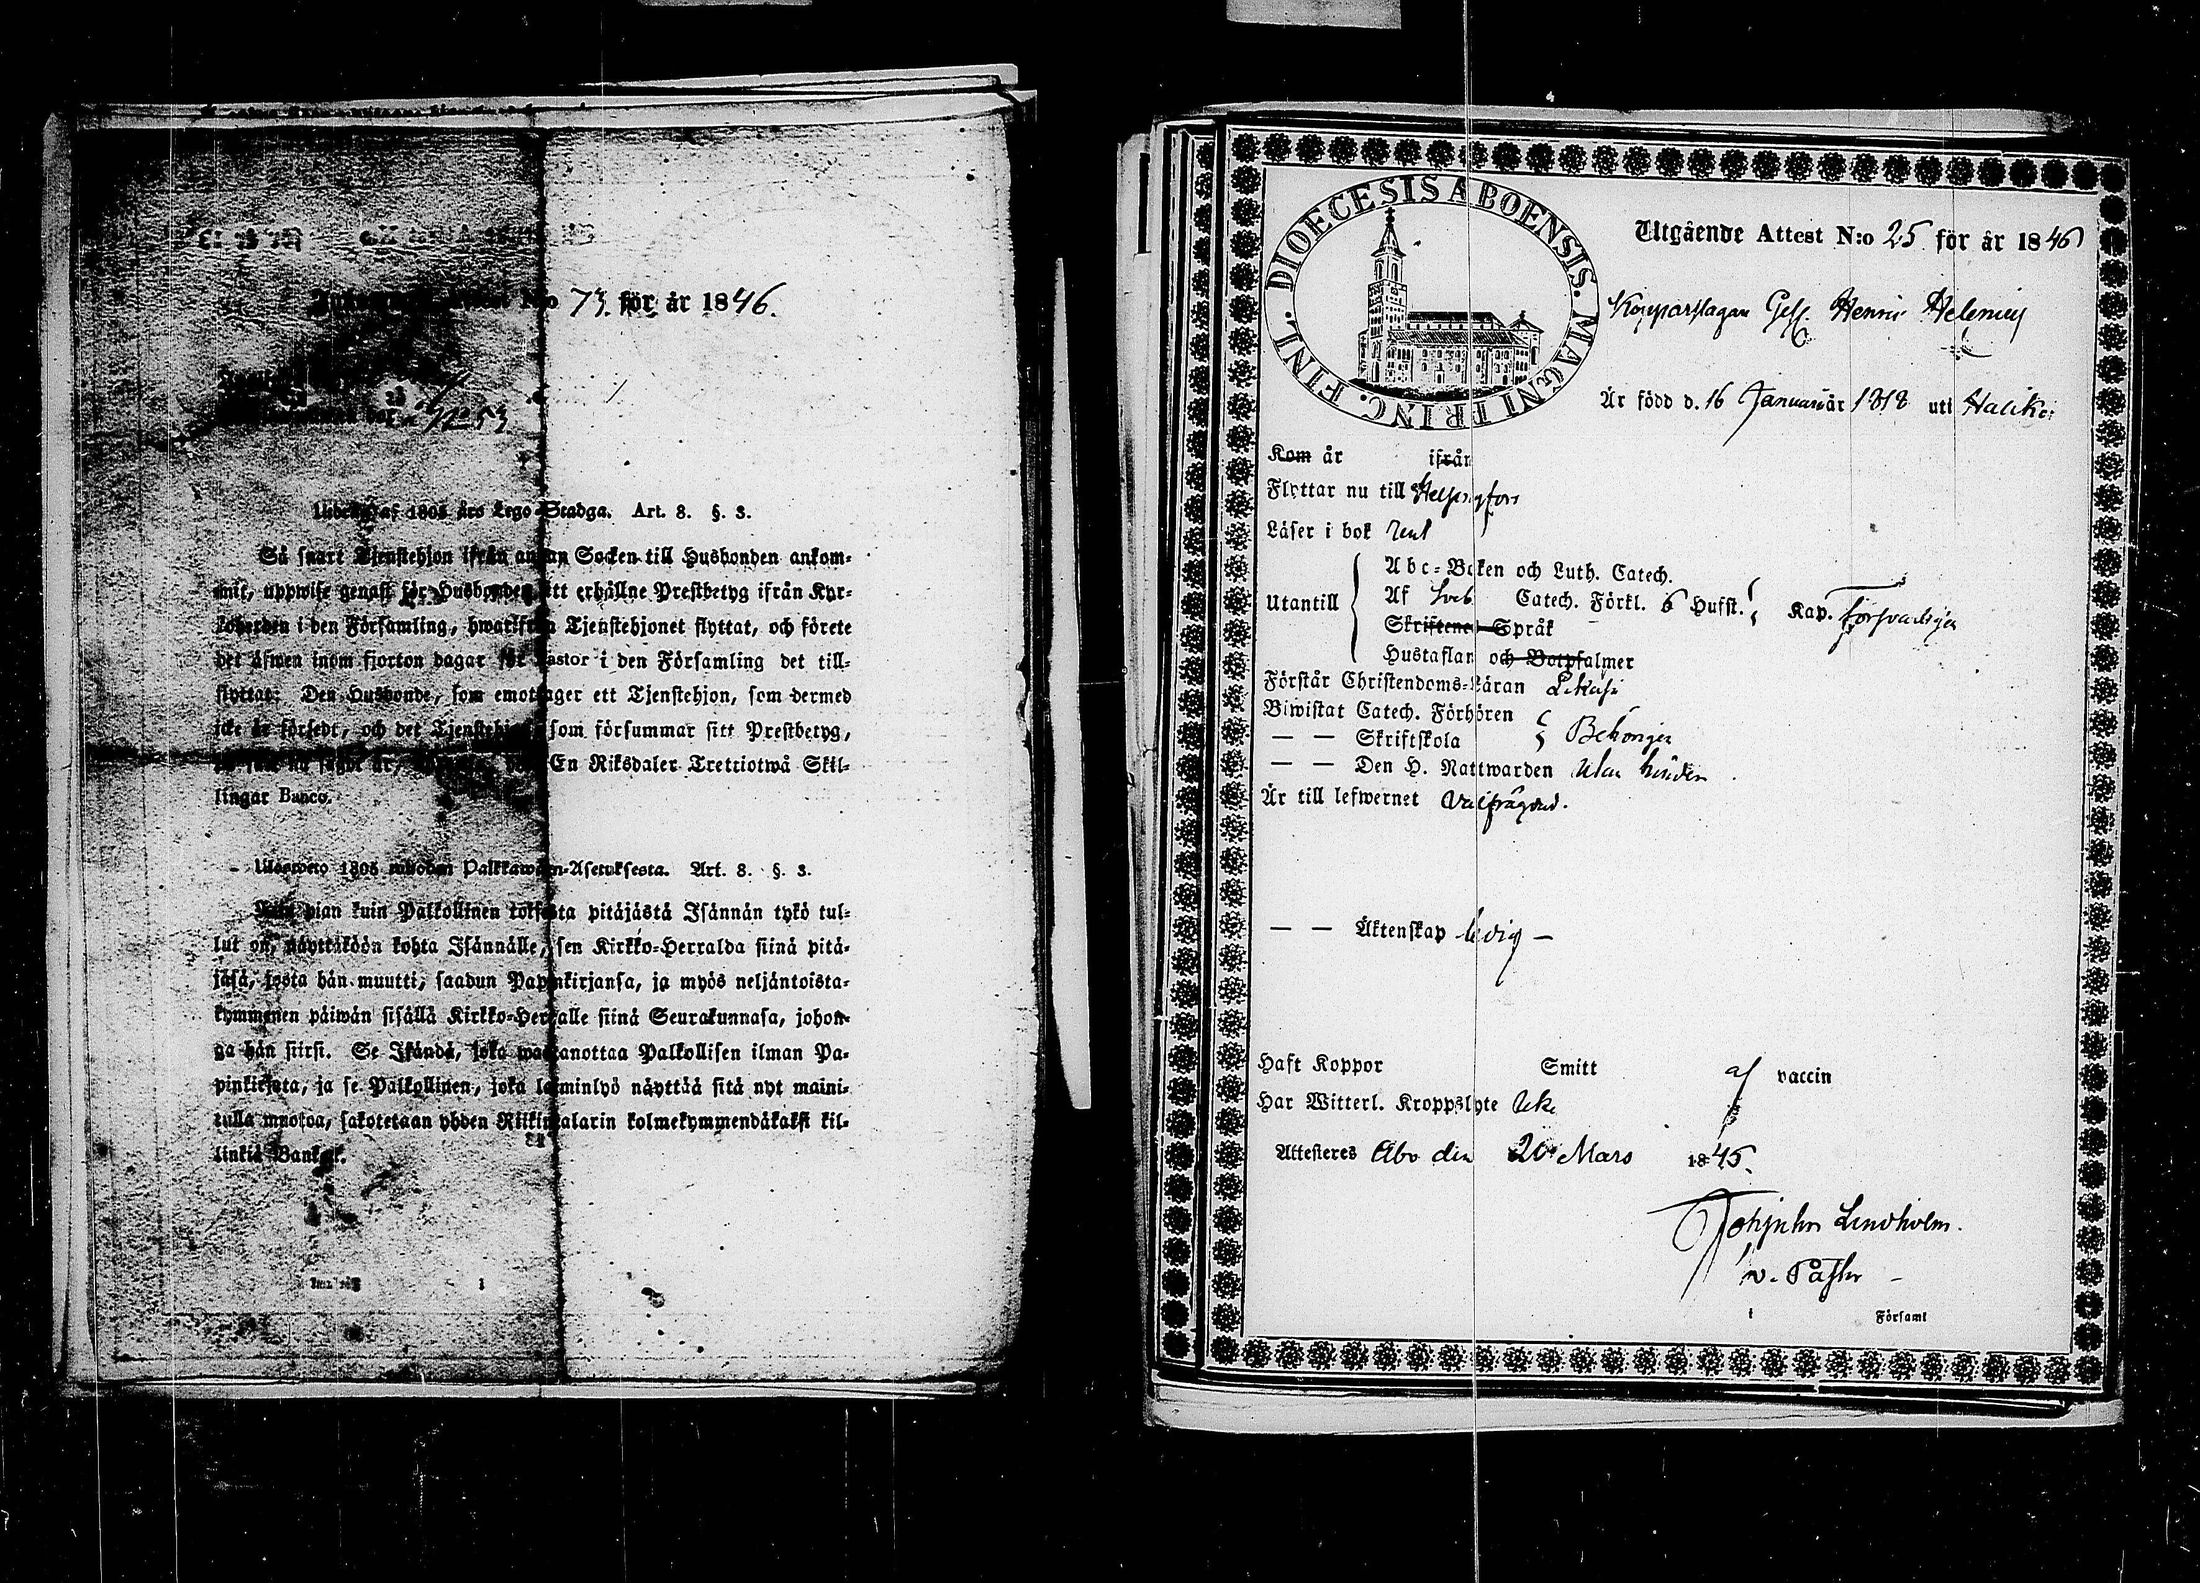 Attest N:o 73. för år 1846.
Utdrag af 1805 års Lego-Stadga. Art. 8. §. 3.
Så snart Tjenstehjon ifrån annan Socken till Husbonden ankom-
mit, uppwise genast för Husbonden sitt erhållne Prestbetyg ifrån Kyr-
koherden i den Församling, hwarifrån Tjenstehjonet flyttat, och förete
det äfwen inom fjorton dagar för Pastor i den Församling det till-
flyttat: Den Husbonde, som emottager ett Tjenstehjon, som dermed
icke är försedt, och det Tjenstehjon som försummar sitt Prestbetyg,
En Riksdaler Trettiotwå Skil-
lingar Banco.
Ulosweto 1805 wuoden Palkkawäen-Asetuksesta. Art. 8. §. 3.
Niin pian kuin Palkollinen toisesta pitäjästä Isännän tykö tul-
lut on, näyttäköön kohta Isännälle, sen Kirkko-Herralda siinä pitä-
jäsä, josta hän muutti, saadun Papinkirjansa, ja myös neljäntoista-
kymmenen päiwän sisällä Kirkko-Herralle siinä Seurakunnasa, johon-
ga hän siirsi. Se Isändä, joka wastanottaa Palkollisen ilman Pa-
pinkirjata, ja se Palkollinen, joka laiminlyö näyttää sitä nyt maini-
tulla muotoa, sakotetaan yhden Riikintalarin kolmekymmendäkaksi kil-
linkiä Bankok.
DIOECESIS ABOENSIS. MAGNI PRINC. FINL.
Utgående Attest N:o 25 för år 1846
Kopparslagare Gess. Henric Helenius
Är född d. 16 Januari år 1818 uti Halikko
Kom år ifrån
Flyttar nu till Helsingfors
Läser i bok rent
Utantill
Abc-Boken och Luth. Catech.
Af Sveb. Catech. Förkl. 6 Husst.
Skriftenes Språk
Hustaflan och Botpsalmer
Kap. försvarligen
Förstår Christendoms-Läran
Biwistat Catech. Förhören
— — Skriftskola
Behörigen
— — Den H. Nattwarden utan hinder
Är till lefwernet välfrägdad.
— — Äktenskap ledig —
Haft Koppor Smitt af vaccin
Har Witterl. Kroppslyte Icke
Attesteres Åbo den 20 Mars 1845.
Lindholm.
v. Pastor
i Församl